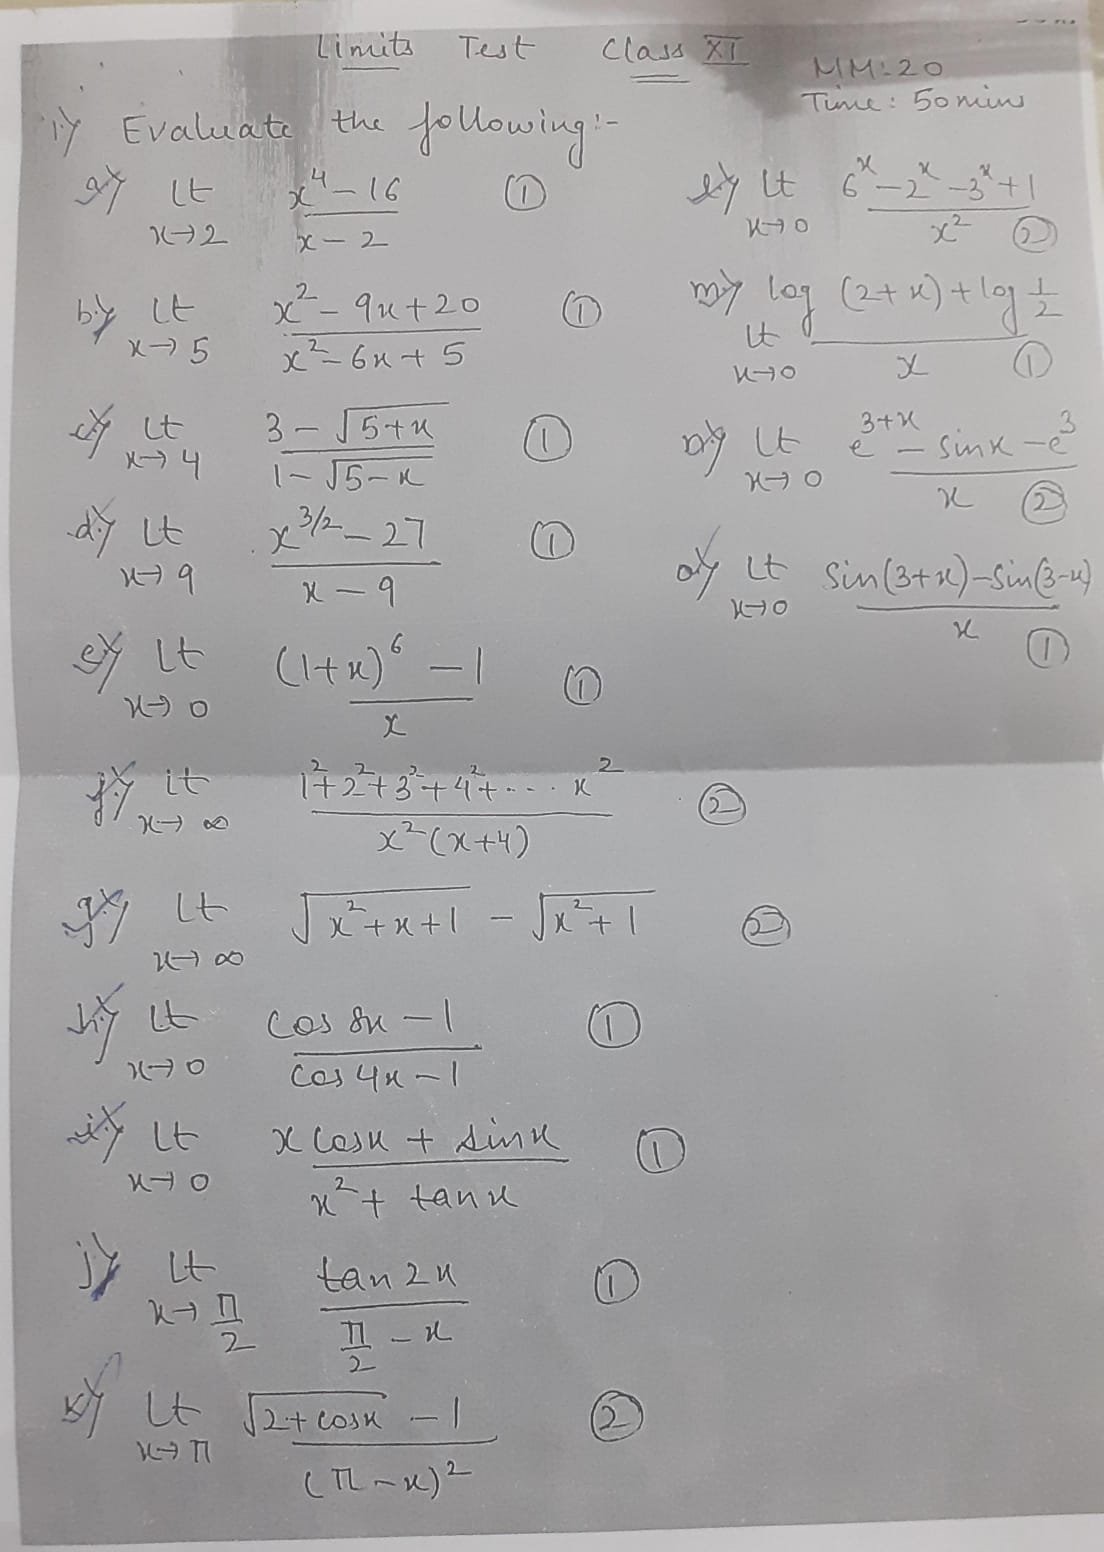 Limits Test Class XI
MM:20
Time: 50 mins
1.) Evaluate the following:-
a) Lt x→2 (x⁴ - 16)/(x - 2) ①
b) Lt x→5 (x² - 9x + 20)/(x² - 6x + 5) ①
c) Lt x→4 (3 - √(5+x))/(1 - √(5-x)) ①
d) Lt x→9 (x^(3/2) - 27)/(x - 9) ①
e) Lt x→0 ((1+x)⁶ - 1)/x ①
f) Lt x→∞ (1² + 2² + 3² + 4² + .... x²)/(x²(x+4)) ②
g) Lt x→∞ √(x²+x+1) - √(x²+1) ②
h) Lt x→0 (cos 8x - 1)/(cos 4x - 1) ①
i) Lt x→0 (x cosx + sinx)/(x² + tanx) ①
j) Lt x→π/2 (tan 2x)/(π/2 - x) ①
k) Lt x→π (√(2+cosx) - 1)/(π - x)² ②
l) Lt x→0 (6^x - 2^x - 3^x + 1)/x² ②
m) Lt x→0 (log (2+x) + log 1/2)/x ①
n) Lt x→0 (e^(3+x) - sinx - e³)/x ②
o) Lt x→0 (Sin(3+x) - Sin(3-x))/x ①